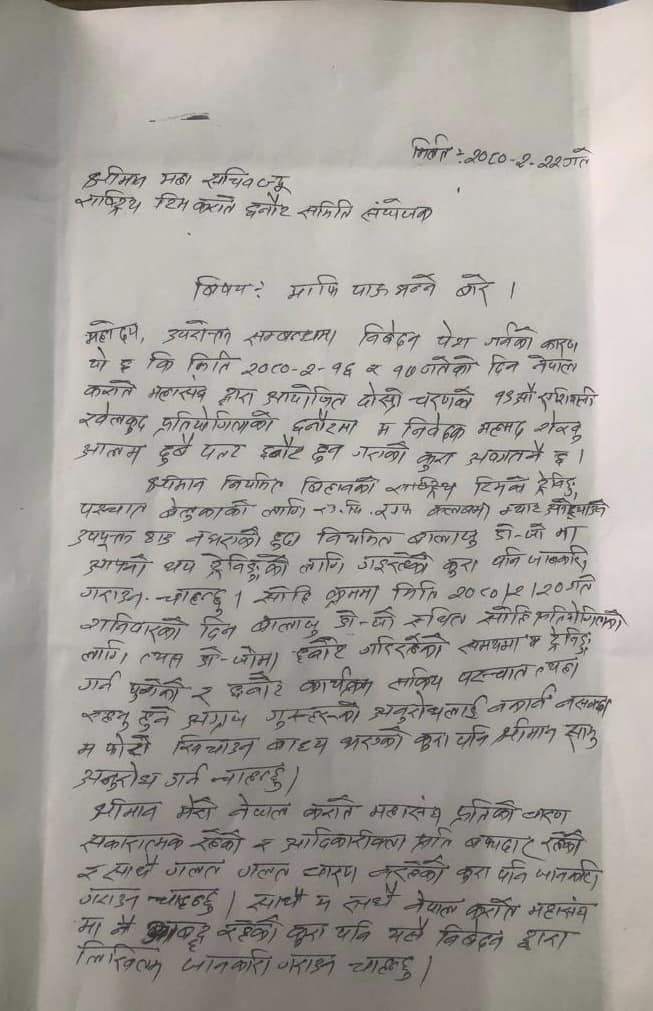 मिति :- २०८०-२-२२ गते
श्रीमान महा सचिवज्यू
राष्ट्रिय टिम कराते छनौट समिति संयोजक
बिषय : माफि पाऊ भन्ने बारे ।
महोदय, उपरोक्त सम्बन्धमा निबेदन पेश गर्नको कारण
यो छ कि मिति २०८०-२-१६ र १७ गतेको दिन नेपाल
कराते महासंघ द्वारा आयोजित दोस्रो चरणको १९औ एशियाली
खेलकुद प्रतियोगिताको छनौटमा म निवेदक महमद
आलम दुबै पलट छनौट हुन गएको कुरा अवगतनै छ ।
श्रीमान नियमित बिहानको राष्ट्रिय टिमको ट्रेनिङ्ग
पश्चात बेलुकाको लागि क्लबमा म्याट
उपयुक्त नभएको हुदा नियमित बालाजु डो-जो मा
आफ्नो थप ट्रेनिङ्गको लागि गइरहेको कुरा पनि जानकारि
गराउन चाहन्छु । सोहि क्रममा मिति २०८०/२/२० गते
शनिवारको दिन बालाजु डो-जो स्थित सोहि प्रतियोगिताको
लागि त्यस डो-जोमा छनौट गरिरहेको समयमा म ट्रेनिङ्ग
गर्न पुगेको र छनौट कार्यक्रम सकिए पश्चात त्यहा
रहनु हुने अग्रज गुरुहरुको अनुरोधलाई नकार्न नसक्दा
म फोटो खिचाउन बाध्य भएको कुरा पनि श्रीमान सामु
अनुरोध गर्न चाहन्छु ।
श्रीमान मेरो नेपाल कराते महासंघ प्रतिको धारणा
सकारात्मक रहेको र आदिकारीकता प्रति बफादार रहेको
र साथै गलत गलत धारणा नरहेको कुरा पनि जानकारी
गराउन चाहन्छु । साथै म सधै नेपाल कराते महासंघ
मा नै आबद्द रहेको कुरा पनि यसै निबेदन द्वारा
लिखित जानकारी गराउन चाहन्छु ।